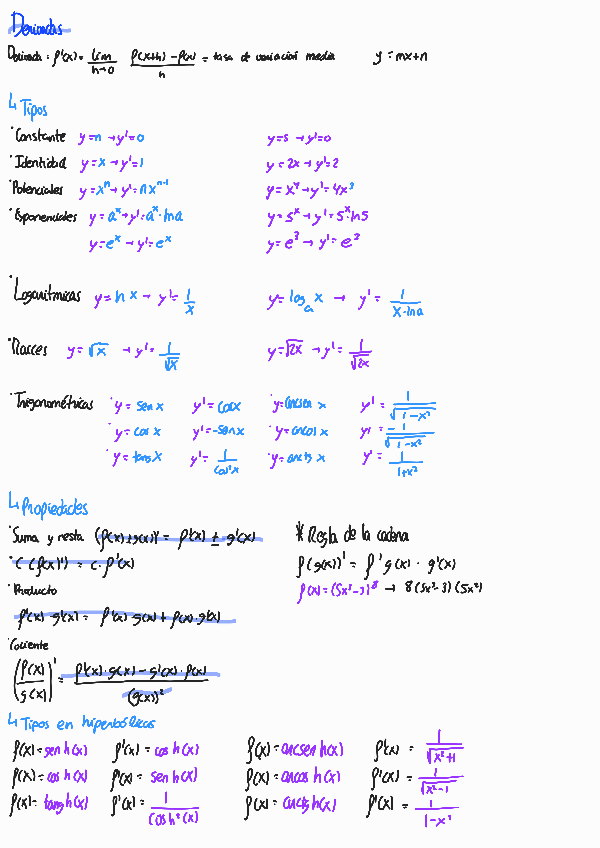 Derivadas
Derivada = f'(x) = lim h→0 f(x+h) - f(x) / h = tasa de variación media y = mx+n
↳ Tipos
· Constante y=n → y'=0 y=5 → y'=0
· Identidad y=x → y'=1 y=2x → y'=2
· Potenciales y=xⁿ → y'=nxⁿ⁻¹ y=x⁴ → y'=4x³
· Exponenciales y=aˣ → y'=aˣ·lna y=5ˣ → y'=5ˣln5
y=eˣ → y'=eˣ
· Logarítmicas y=ln x → y'=1/x y=logₐ x → y'=1/(x·lna)
· Raíces y=√x → y'=1/√x y=√2x → y'=1/√2x
· Trigonométricas · y=sen x y'=cosx · y=arcsen x y'=1/√(1-x²)
· y=cos x y'=-senx · y=arcos x y'=-1/√(1-x²)
· y=tang x y'=1/cos²x · y=arctg x y'=1/(1+x²)
↳ Propiedades
· Suma y resta (f(x)±g(x))' = f'(x) ± g'(x) * Regla de la cadena
· (c(f(x))') = c·f'(x) f(g(x))' = f'g(x)·g'(x)
· Producto
f'(x)·g'(x) = f'(x)·g(x) + f(x)·g'(x)
· Cociente
(f(x)/g(x))' = f'(x)·g(x) - g'(x)·f(x) / (g(x))²
↳ Tipos en hiperbólicas
f(x)=sen h(x) f'(x)=cos h(x) f(x)=arcsen h(x) f'(x)=1/√(x²+1)
f(x)=cos h(x) f'(x)=sen h(x) f(x)=arcos h(x) f'(x)=1/√(x²-1)
f(x)=tang h(x) f'(x)=1/(cos h²(x)) f(x)=arctg h(x) f'(x)=1/(1-x²)